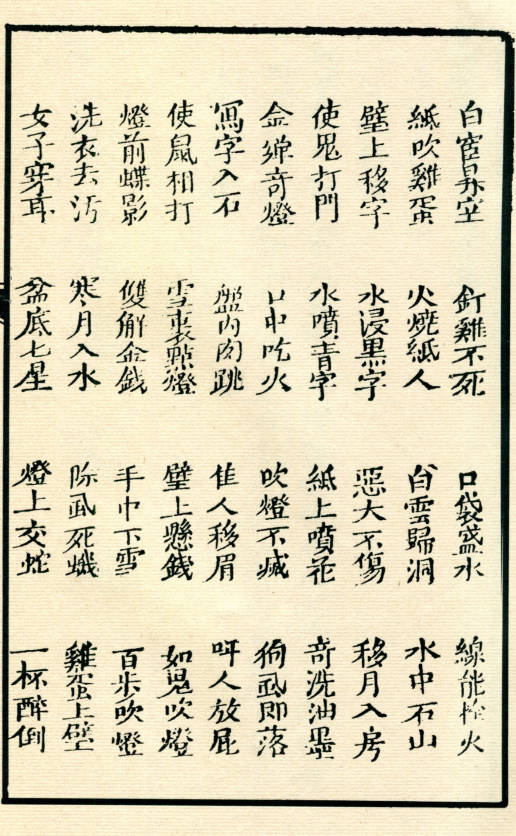 白宦昇空 釘雞不死 口袋盛水 線能栓火
紙吹雞蛋 火燒紙人 白雲歸洞 水中石山
壁上移字 水浸黑字 惡大不傷 移月入房
使鬼打門 水噴青字 紙上噴花 奇洗油墨
金弹奇燈 口中吃火 吹燈不滅 狗虱即落
寫字入石 盤內肉跳 佳人移眉 呀人放屁
使鼠相打 雪裹點燈 壁上懸錢 如鬼吹燈
燈前蝶影 雙解金錢 手巾下雪 百步吹燈
洗衣去汚 寒月入水 除虱死蟣 雞蛋上壁
女子穿耳 盆底七星 燈上交蛇 一杯醉倒